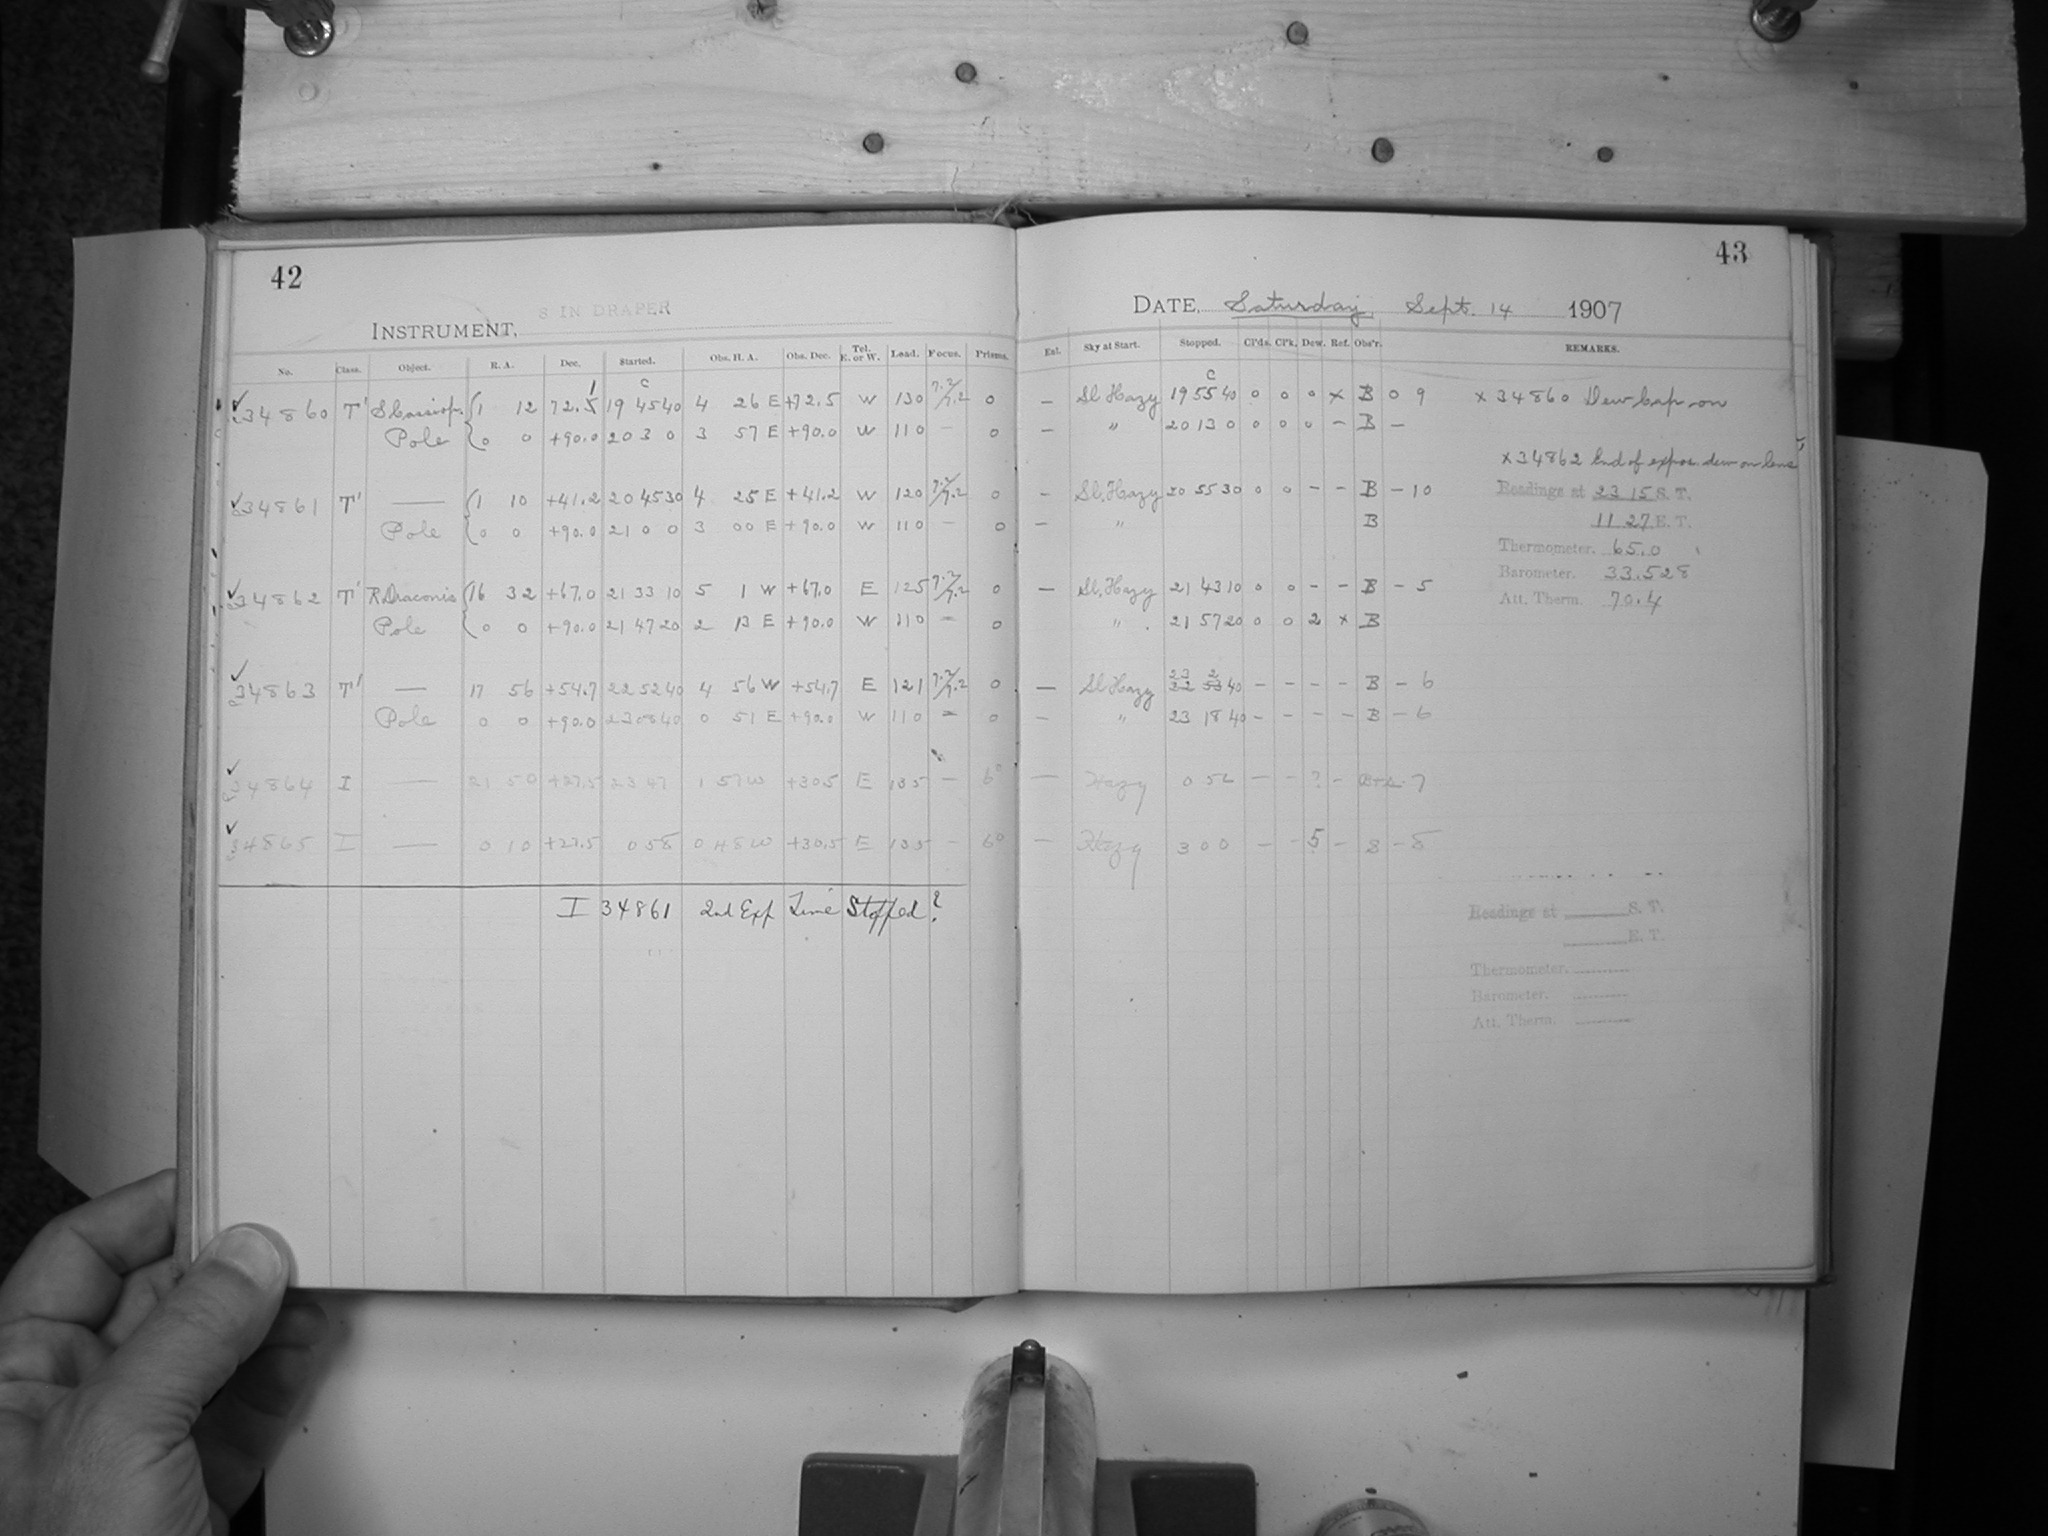 42
8 IN DRAPER
INSTRUMENT,
No. Class. Object. R. A. Dec. Started. Obs. H. A. Obs. Dec. Tel. E. or W. Lead. Focus. Prisms.
34860 T' S Cassiop. 1 12 72.5 19 45 40 4 26 E +72.5 W 130 7.2/7.2 0
Pole 0 0 +90.0 20 3 0 3 57 E +90.0 W 110 — 0
34861 T' — 1 10 +41.2 20 45 30 4 25 E +41.2 W 120 7.2/7.2 0
Pole 0 0 +90.0 21 0 0 3 00 E +90.0 W 110 — 0
34862 T' R Draconis 16 32 +67.0 21 33 10 5 1 W +67.0 E 125 7.2/7.2 0
Pole 0 0 +90.0 21 47 20 2 13 E +90.0 W 110 — 0
34863 T' — 17 56 +54.7 22 52 40 4 56 W +54.7 E 121 7.2/7.2 0
Pole 0 0 +90.0 23 08 40 0 51 E +90.0 W 110 — 0
34864 I — 21 50 +27.5 23 47 1 57 W +30.5 E 135 — 6°
34865 I — 0 10 +27.5 0 58 0 48 W +30.5 E 135 — 6°
I 34861 2nd Exp Time Stopped?
43
DATE, Saturday, Sept. 14 1907
Est. Sky at Start. Stopped. Cl'ds. Cl'k. Dew. Ref. Obs'r. REMARKS.
— Sl Hazy 19 55 40 0 0 0 x B 0 9 x 34860 Dew Cap on
— " 20 13 0 0 0 0 — B —
x 34862 End of expos. dew on lens
— Sl. Hazy 20 55 30 0 0 — — B — 10
— " B
— Sl. Hazy 21 43 10 0 0 — — B — 5
" 21 57 20 0 0 2 x B
— Sl Hazy 23 2 40 — — — — B — 6
— " 23 18 40 — — — — B — 6
— Hazy 0 52 — — ? — 7
— Hazy 3 0 0 — — 5 — S — 8
Readings at 23 15 S. T.
11 27 E. T.
Thermometer. 65.0
Barometer. 33.528
Att. Therm. 70.4
Readings at S. T.
E. T.
Thermometer.
Barometer.
Att. Therm.